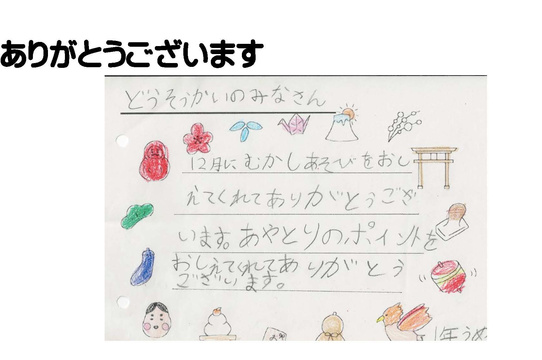 ありがとうございます
どうそうかいのみなさん
12月にむかしあそびをおし
えてくれてありがとうござ
います。あやとりのポイントを
おしえてくれてありがとう
ございます。
1年うめ